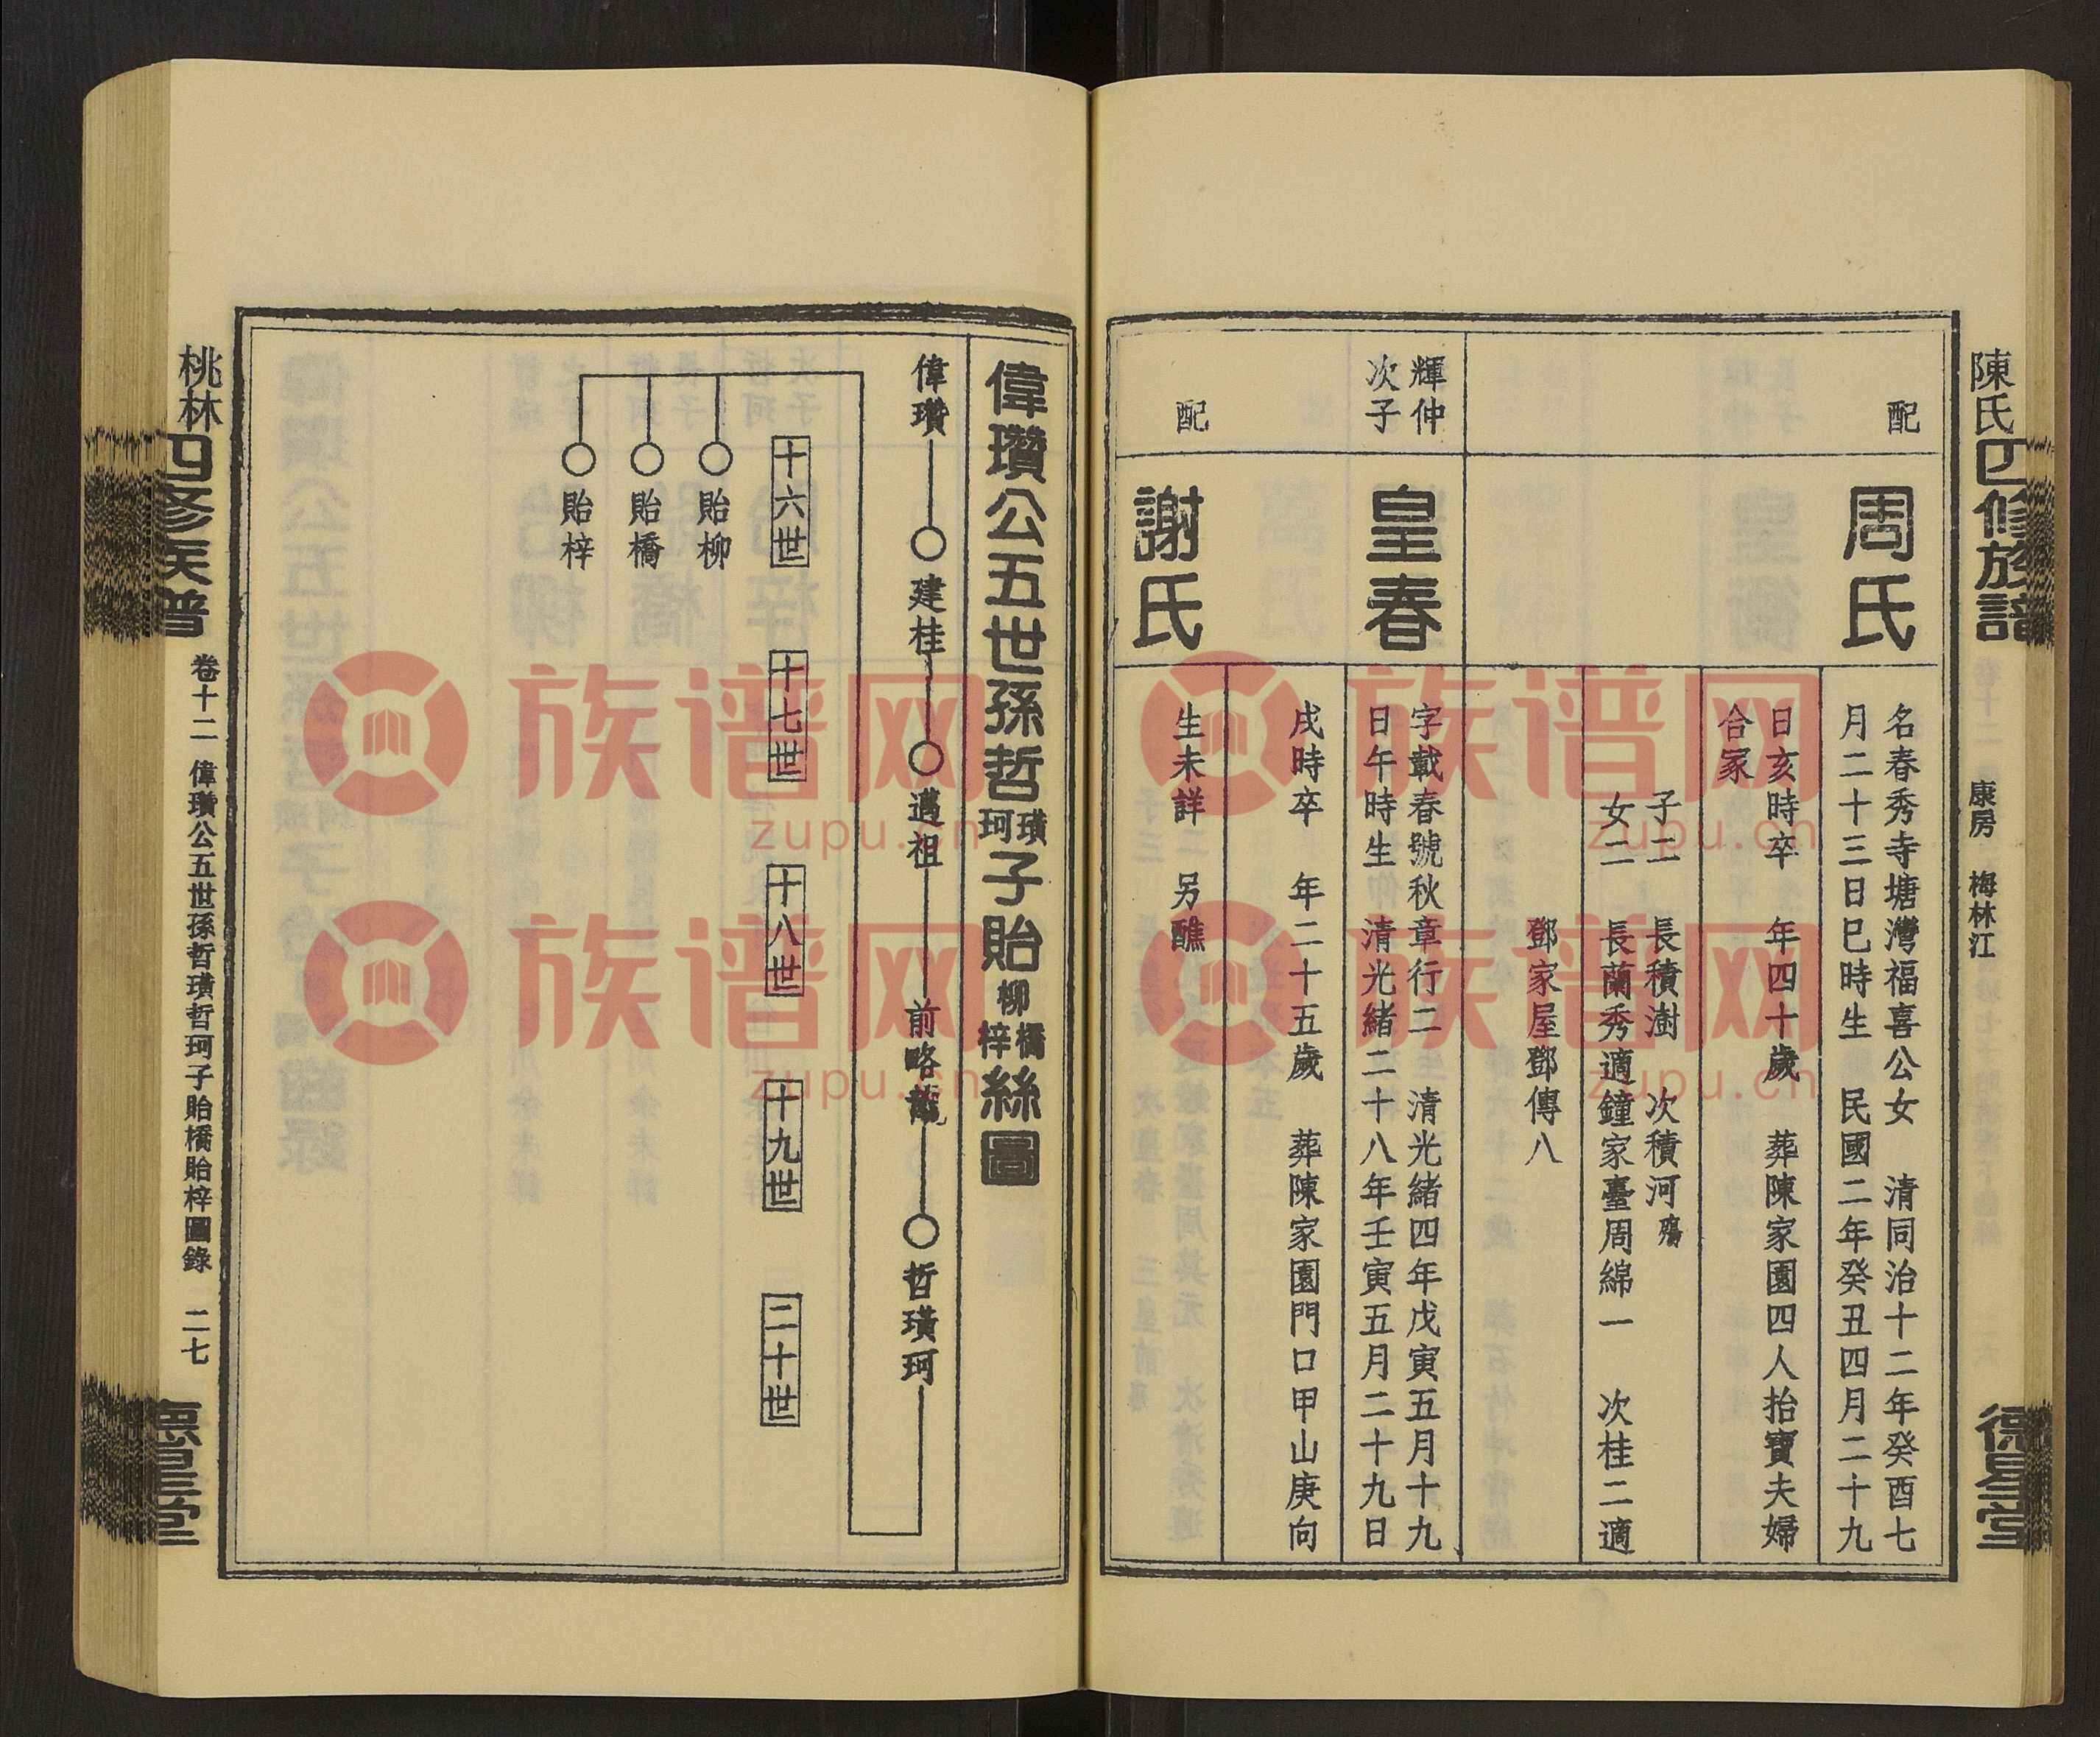 陳氏四修族譜
康房 梅林江
德星堂
配
周氏
名春秀寺塘灣福喜公女 清同治十二年癸酉七
月二十三日巳時生 民國二年癸丑四月二十九
日亥時卒 年四十歲 葬陳家園四人抬寶夫婦
合冢
子二 長積澍 次積河殤
女二 長蘭秀適鐘家臺周綿一 次桂二適
鄧家屋鄧傳八
輝仲
次子
皇春
字載春號秋章行二 清光緒四年戊寅五月十九
日午時生 清光緒二十八年壬寅五月二十九日
戌時卒 年二十五歲 葬陳家園門口甲山庚向
配
謝氏
生未詳 另醮
偉瓚公五世孫哲璜珂子貽橋柳梓絲圖
偉瓚
建桂
邁祖
前略龍
哲璜珂
十六世
十七世
十八世
十九世
二十世
貽柳
貽橋
貽梓
桃林四修族譜
卷十二 偉瓚公五世孫哲璜哲珂子貽橋貽梓圖錄 二七
德星堂
族谱网
zupu.cn
族谱网
zupu.cn
族谱网
zupu.cn
族谱网
zupu.cn